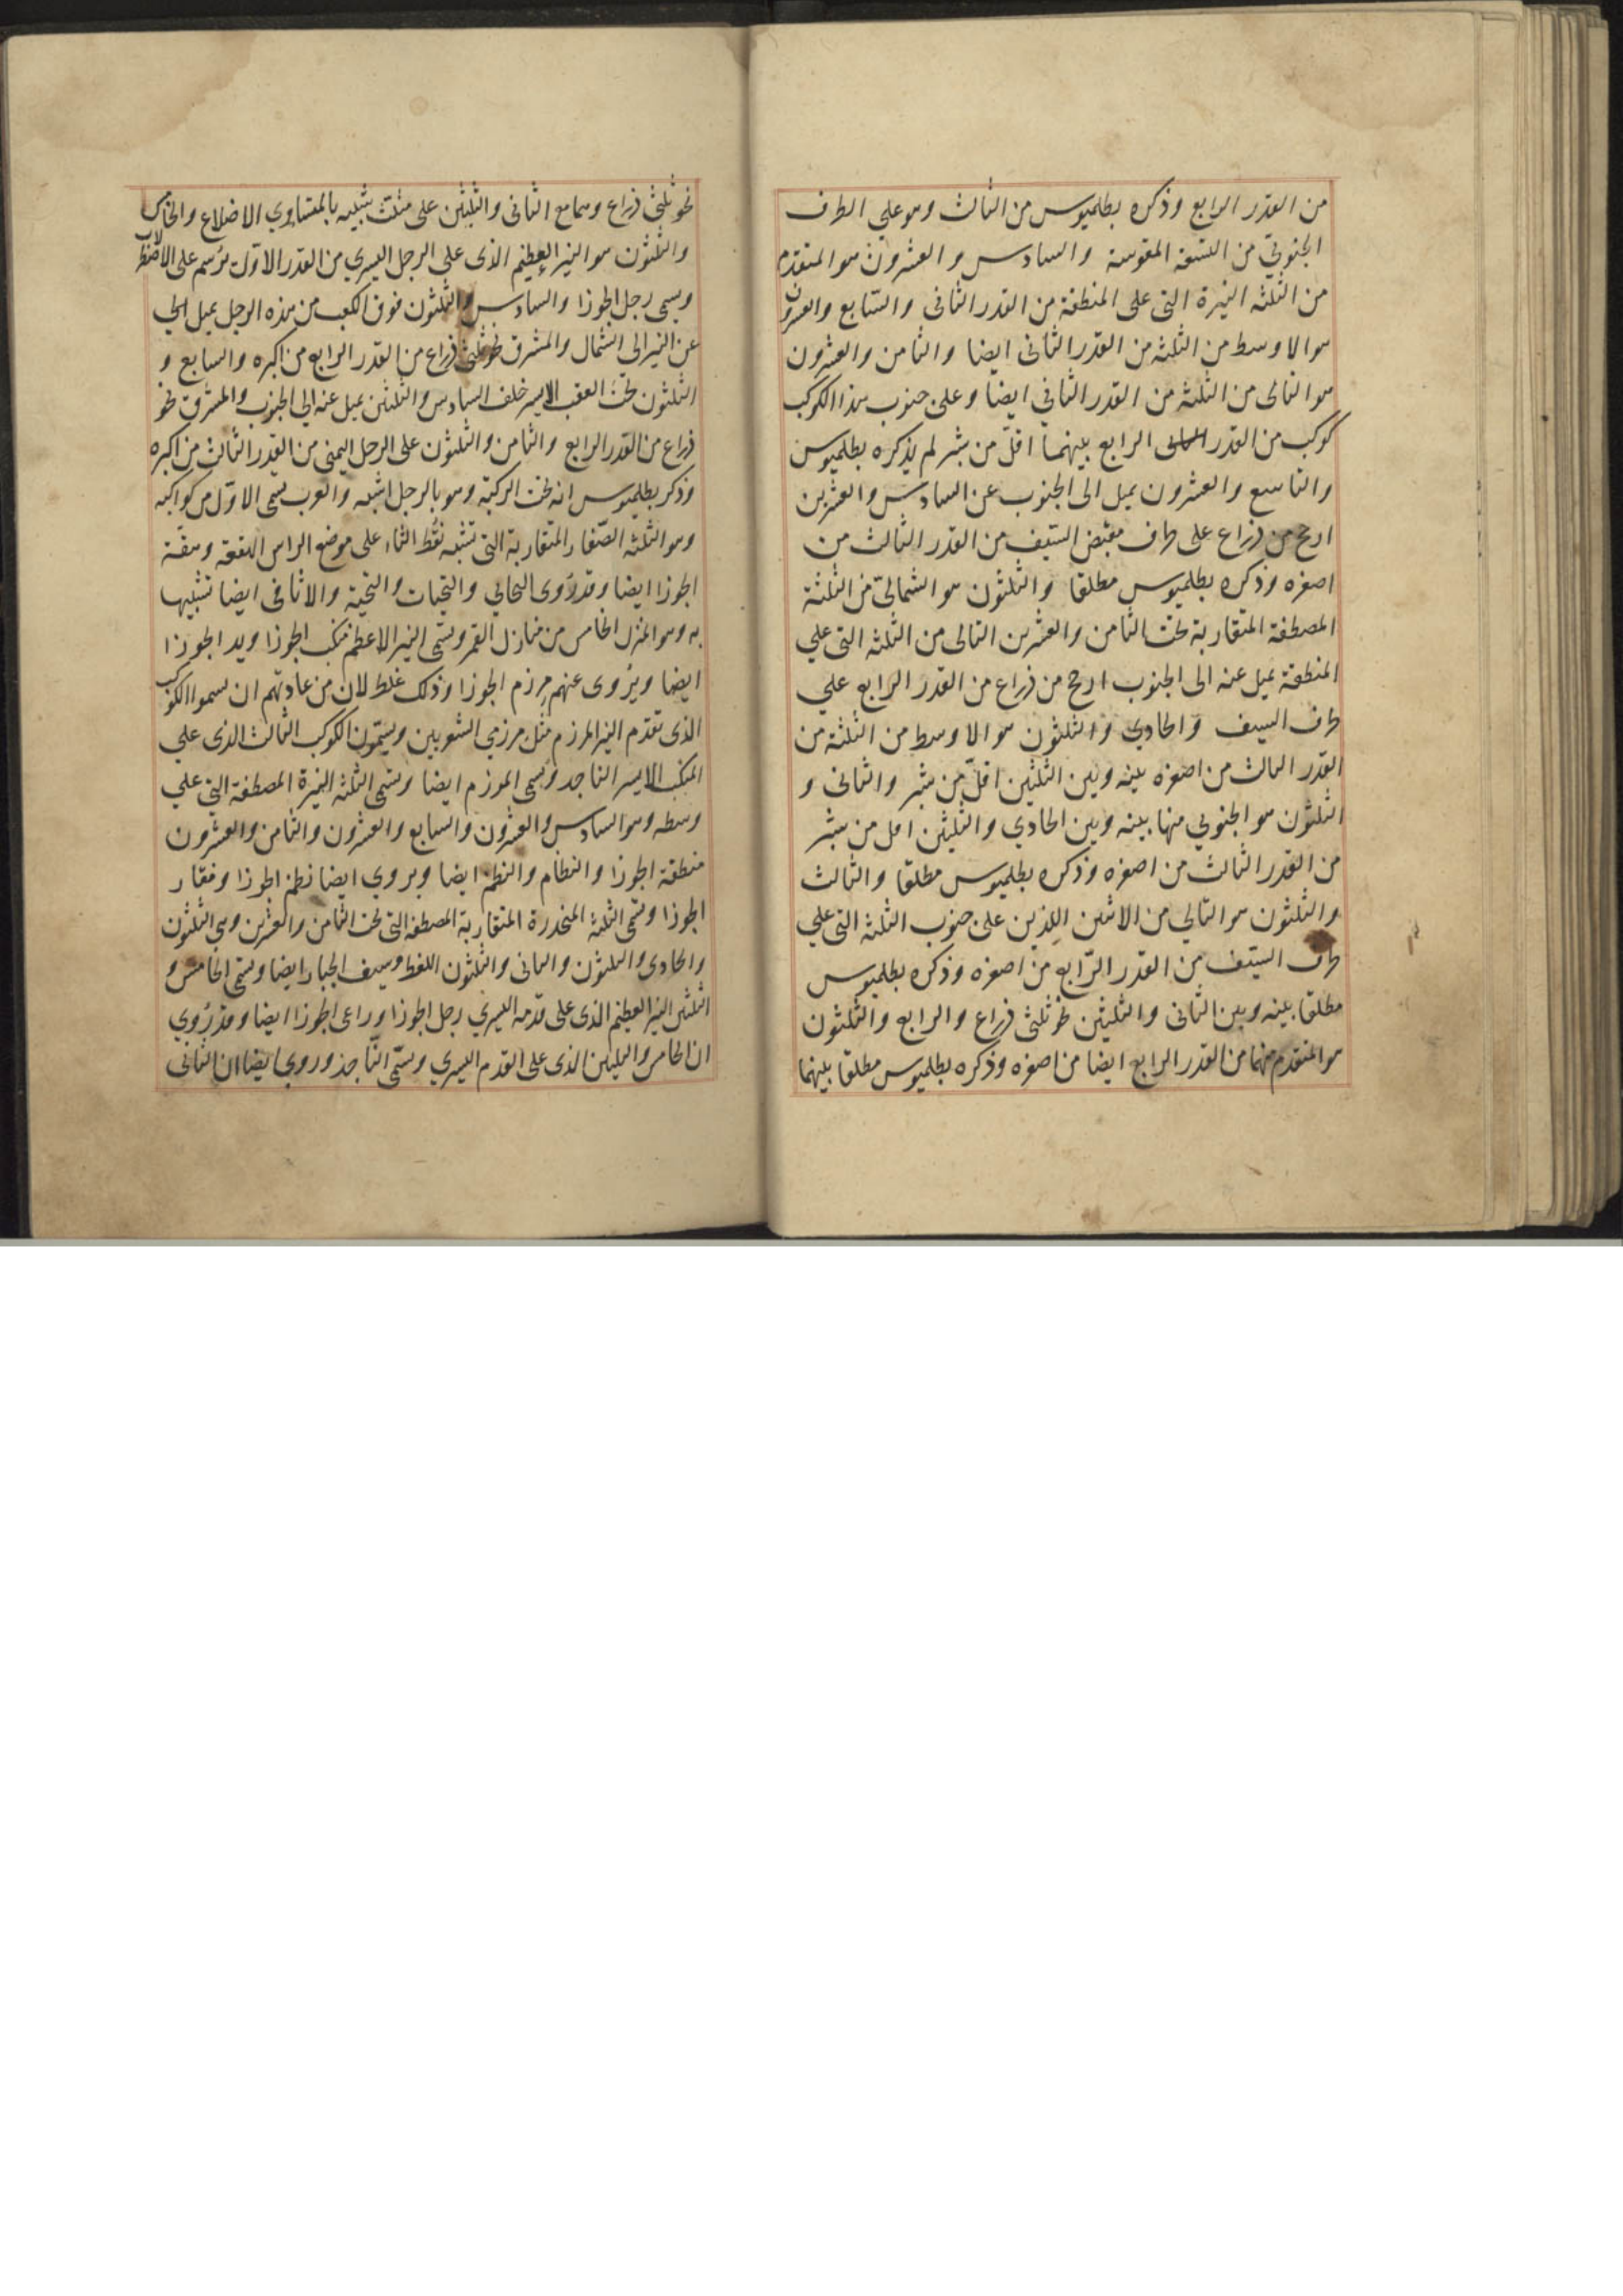 من القدر الرابع وذكره بطلميوس من الثالث وهو على الطرف
الجنوبي من التسعة المقوسة والسادس والعشرون هو المتقدم
من الثلثه النيرة التى على المنطقة من القدر الثانى والسابع والعشرون
هو الاوسط من الثلثه من القدر الثانى ايضا والثامن والعشرون
هو التالى من الثلثه من القدر الثاني ايضا وعلى جنوب هذا الكوكب
كوكب من القدر الرابع بينهما اقل من شبر لم يذكره بطلميوس
والتاسع والعشرون يميل الى الجنوب عن السادس والعشرين
ارجح من ذراع على طرف مقبض السيف من القدر الثالث من
اصغره وذكره بطلميوس مطلقا والثلثون هو الشمالى من الثلثة
المصطفة المتقاربة تحت الثامن والعشرين التالى من الثلثه التى على
المنطقة يميل عنه الى الجنوب ارجح من ذراع من القدر الرابع علي
طرف السيف والحادي والثلثون هو الاوسط من الثلثة من
القدر الثالث من اصغره بينه وبين الثلثين اقل من شبر والثانى و
الثلثون هو الجنوبي منها بينه وبين الحادي والثلثين اقل من شبر
من القدر الثالث من اصغره وذكره بطلميوس مطلقا والثالث
والثلثون هو التالي من الاثنين اللذين على جنوب الثلثه التى علي
طرف السيف من القدر الرابع من اصغره وذكره بطلميوس
مطلقا بينه وبين الثانى والثلثين نحو ثلثى ذراع والرابع والثلثون
هو المتقدم منهما من القدر الرابع ايضا من اصغره وذكره بطلميوس مطلقا بينهما
نحو ثلثى ذراع وهما مع الثانى والثلثين على مثلث شبيه بالمتساوي الاضلاع والخامس
والثلثون هو النير العظيم الذى على الرجل اليسري من القدر الاول يرسم على الاصطرلاب
ويسمى رجل الجوزا والسادس والثلثون فوق الكعب من هذه الرجل يميل الي
عن النير الى الشمال والمشرق نحو ثلثى ذراع من القدر الرابع من اكبره والسابع و
الثلثون تحت العقب الايسر خلف السادس والثلثين يميل عنه الي الجنوب والمشرق نحو
ذراع من القدر الرابع والثامن والثلثون على الرجل اليمنى من القدر الثالث من اكبره
وذكر بطلميوس انه تحت الركبة وهو بالرجل اشبه والعرب تسمى الاول من كواكبه
وهو الثلثه الصغار المتقاربة التى تشبه نقط الثاء على موضع الراس الهقعة وهقعة
الجوزا ايضا وقد روى التحائي والتحيات والتحية والاثافى ايضا تشبيها
به وهو المنزل الخامس من منازل القمر وتسمى النير الاعظم منكب الجوزا ويد الجوزا
ايضا ويروى عنهم مرزم الجوزا وذلك غلط لان من عادتهم ان يسموا الكوكب
الذى تقدم النير المرزم مثل مرزمي الشعريين ويسمون الكوكب الثالث الذى علي
المنكب الايسر الناجد ويسمى المرزم ايضا وتسمى الثلثه النيرة المصطفة التي علي
وسطه وهو السادس والعشرون والسابع والعشرون والثامن والعشرون
منطقة الجوزا والنطام والنظم ايضا ويروي ايضا نظم الجوزا وفقار
الجوزا وتسمى الثلثة المنحدرة المتقاربة المصطفة التى تحت الثامن والعشرين وهي الثلثون
والحادى والثلثون والثانى والثلثون اللقط وسيف الجبار ايضا وتسمى الخامس و
الثلثين النير العظيم الذى على قدمه اليسري رجل الجوزا وراعى الجوزا ايضا وقد روي
ان الخامس والثلثين الذى على القدم اليسري وسمى الناجد وروي ايضا ان الثانى